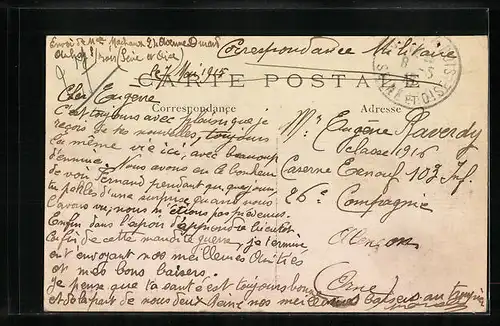 Envoi de Mme
Correspondance Militaire
le 7 Mai 1915
CARTE POSTALE
Correspondance
Adresse
SEINE ET OISE
Cher Eugene
C'est toujours avec plaisir que je
reçois de tes nouvelles, toujours
la même vie ici, avec beaucoup
d'ennuie. Nous avons eu le bonheur
de voir Fernand pendant quelques jours,
tu parles d'une surprise quand nous
l'avons vu, nous n'étions pas prévenus.
Enfin dans l'espoir d'apprendre bientôt
la fin de cette maudite guerre, je termine
en t envoyant nos meilleures Amitiés
et mes bons baisers.
Je pense que ta santé est toujours bonne
et de la part de nous deux nos meilleurs baisers au
Mr Eugène Raverdy
classe 1916
Caserne Ernouf 103 Inf.
26e Compagnie
Alençon
(Orne)